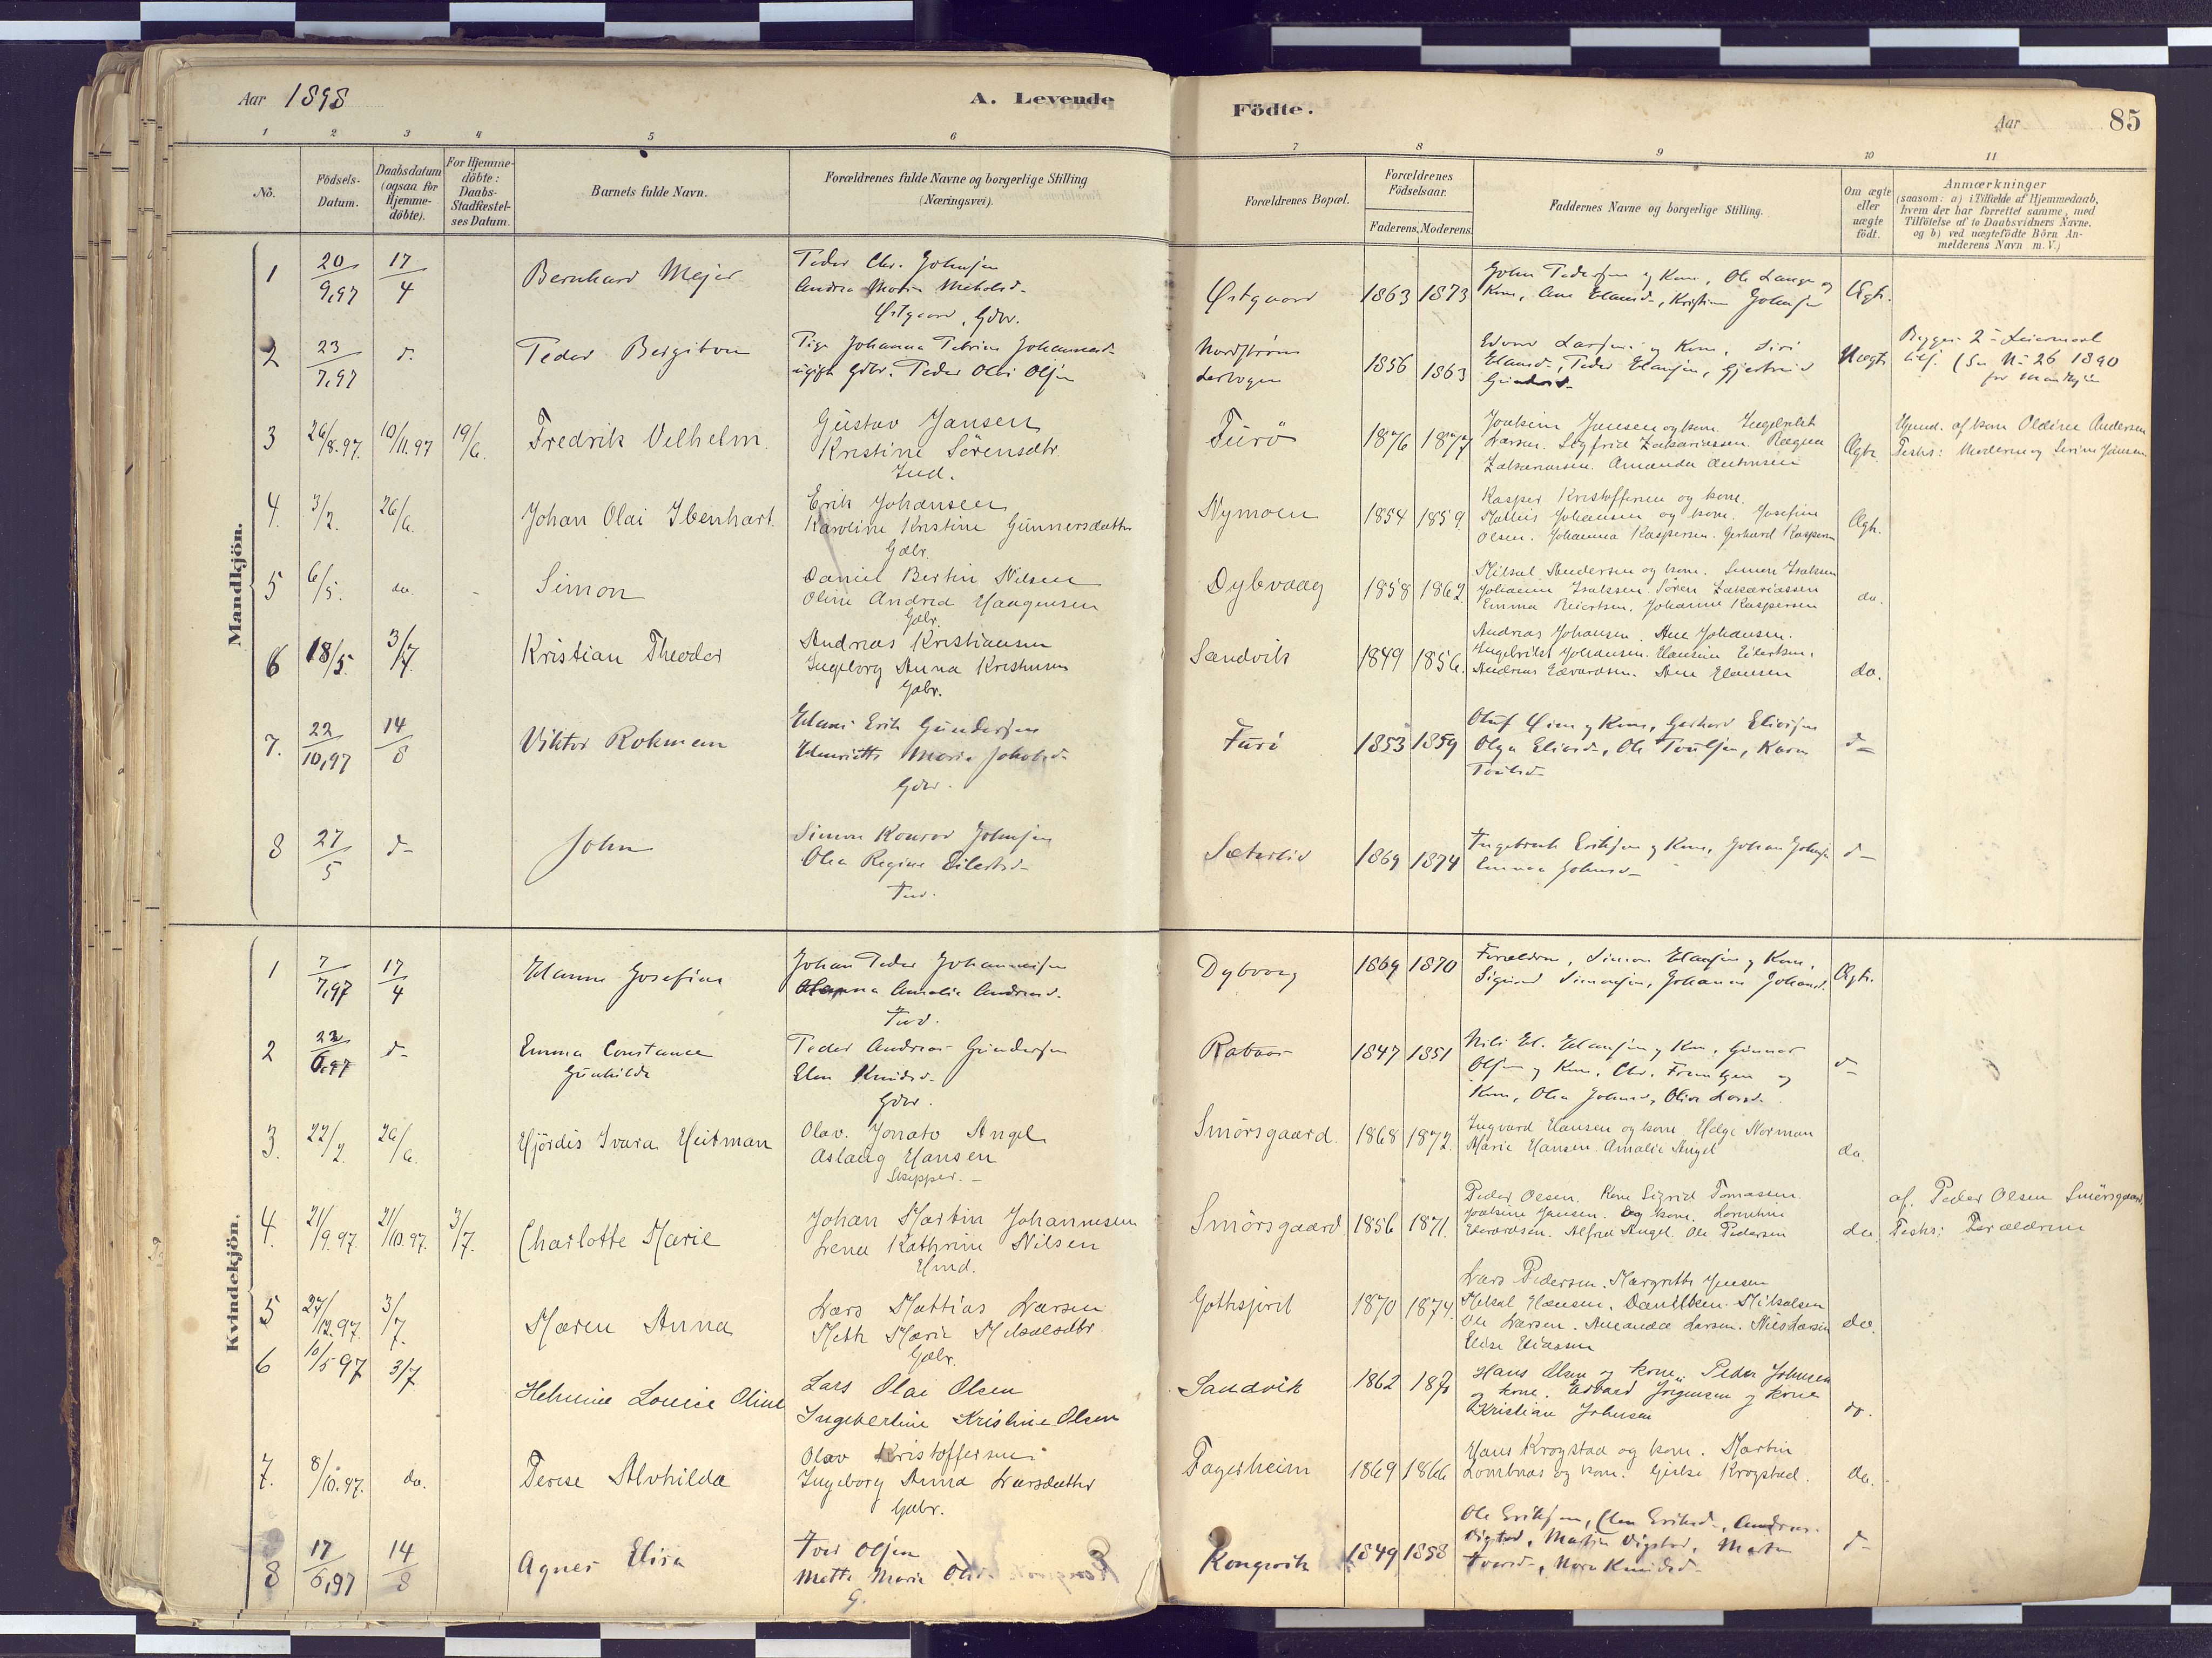 Aar 1898
A. Levende
Födte.
Aar
85
1 2 3 4 5 6 7 8 9 10 11
No.
Födsels-
Datum.
Daabsdatum
(ogsaa for
Hjemme-
döbte).
For Hjemme-
döbte:
Daabs-
Stadfæstel-
ses Datum.
Barnets fulde Navn.
Forældrenes fulde Navne og borgerlige Stilling
(Næringsvei).
Forældrenes Bopæl.
Forældrenes
Födselsaar.
Faderens. Moderens.
Faddernes Navne og borgerlige Stilling.
Om ægte
eller
uægte
födt.
Anmærkninger
(saasom: a) i Tilfælde af Hjemmedaab,
hvem der har forrettet samme, med
Tilföielse af to Daabsvidners Navne.
og b) ved uægtefödte Börn An-
melderens Navn m. V.)
Mandkjön.
1 20/9,97 17/4 Bernhard Mejer
Peder Chr. Johnsen
Andrea Maria
Østgaard, Gdbr.
Østgaard 1863 1873
John Pedersen og Kone, Ole Lange og
Kone, Kristine Johnsen
Ægte.
2 23/7,97 d. Peder Bergiton
Pige Johanna Petrine
ugift Gdbr. Peder Olai Olsen
1856 1863
Edvard Larsen og Kone, Siri
Peder Hansen, Gjertrud
Uægte
Begges 2-Leiermaal
(Se No 26 1890
3 26/8.97. 10/11.97 19/6. Fredrik Velhelm.
Gustav Jansen
Kristine Sörensdtr.
Ind.
Furö 1876 1877
Joakim Jansen og kone. Ingebrikt
Larsen. Sigfrid Zakariassen. Ragna
Zakariasen. Amanda Antonsen
Ægte.
Hjmd. af kone Oldine Andersen
Testes: Moderen og Serine Jansen
4. 3/2. 26/6. Johan Olai Ibenhart.
Erik Johansen
Karoline Kristine Gunnersdatter
Gdbr.
Nymoen 1854 1859.
Kasper Kristoffersen og kone.
Mathis Johansen og kone. Josefine
Olsen. Johanna Kaspersen. Gerhard Kaspersen
Ægte.
5 6/5. do. - Simon
Daniel Bertin Nilsen
Oline Andrea Haagensen
Gdbr.
Dybvaag 1858 1862
Mikal Andersen og kone. Simon Isaksen
Johanna Isaksen. Sören Zakariassen
Emma Reiertsen. Johanna Kaspersen
do.
6 18/5. 3/7. Kristian Theodor
Andreas Kristiansen
Ingeborg Anna Kristensen
Gdbr.
Sandvik 1849 1856.
Andreas Johansen. Ane Johansen.
Ingebrikt Johansen. Hansine Eilertsen.
Andreas Edvardsen. Ane Hansen
do.
7. 22/10,97 14/8 Viktor Rokmann
Hans Erik Gundersen
Henriette Maria Jakobsd.
Gdbr.
Furö 1853 1859
Oluf og Kone, Gerhard Eliasen
Olga Eliasd., Ole Poulsen, Karen
Poulsd.
d-
8 27/5 d- John
Simon Konrad Johnsen
Olea Regine Eilertsd-
Ind.
Sæterlid 1869 1874
Ingebrekt Eriksen og Kone, Johan Johnsen
Emma Johnsd-
d-
Kvindekjön.
1 7/7,97 17/4 Hanna Josefine
Johan Peder Johannesen
Amalie Andreasd.
Ind.
Dybvaag 1869 1870
Forældrene, Simon Hansen og Kone,
Sigurd Simonsen, Johanna Johansd.
Ægte.
2 22/6.97 d- Emma Constance
Gunhilda
Peder Andreas Gundersen
Elen Knudsd.
Gdbr.
Rataas 1847 1851
Nils H. Hansen og Kone, Gunnar
Olsen og Kone, Chr. Frantzen og
Kone, Olea Johnsd., Oline Larsd.
d-
3. 22/2. 26/6. Hjördis Ivara Heitman
Olav. Jonato Angel
Aslaug Hansen
Skipper. -
Smörsgaard. 1868 1872.
Ingvard Hansen og kone. Helge Norman
Marie Hansen. Amalie Angel
do.
4. 21/9.97. 21/10.97. 3/7. Charlotte Marie
Johan Martin Johannesen
Lena Kathrine Nilsen
Hmd.
Smörsgaard 1856 1871.
Peder Olsen. Kone Sigrid Tomassen.
Joakim Jansen. og kone.
Edvardsen. Alfred Angel. Ole Pedersen
do.
af. Peder Olsen Smörsgaard,
Testes: Forældrene
5 27/12.97. 3/7. Maren Anna
Lars Mattias Larsen
Meth Marie Mikalsdtr.
Gdbr.
Gothsjord 1870 1874.
Lars Pedersen. Margrethe Jensen
Mikal Hansen. Mikalsen
Ole Larsen. Amanda Larsen. Nils Larsen
Elise Eliassen
do.
6 10/5 97 3/7 Helmine Louise Oline
Lars Olai Olsen
Ingebertine Kristine Olsen
Sandvik 1862 187
Hans Olsen og kone, Peder Johnsen
og kone. Edvard Jörgensen og kone
Kristian Johnsen
do.
7. 8/10.97. do. Terese Alvhilda
Olav Kristoffersen
Ingeborg Anna Larsdatter
Gdbr.
Fagerheim 1869 1866
Hans Krogstad og kone. Martin
og kone. Gjertie Krogstad.
do.
8 17/6,97 14/8 Agnes Elisa
Iver Olsen
Mette Marie Olsd.
G.
Kongsvik 1849 1858
Ole Eriksen, Elen Eriksd-, Andreas
Vigstad, Vigstad, Marthe
Iversd-, Knudsd-
d-